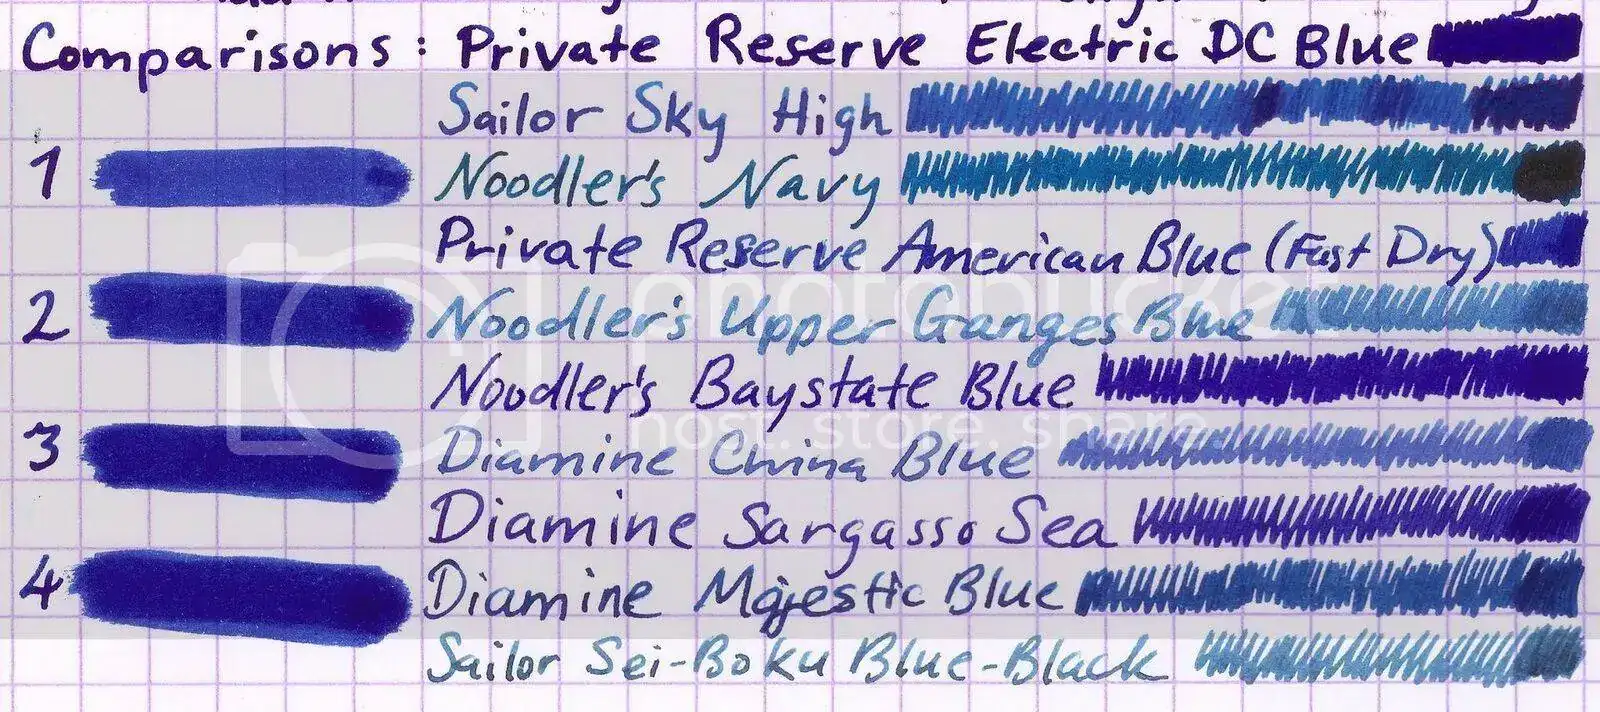 Comparisons: Private Reserve Electric DC Blue
Sailor Sky High
1 Noodler's Navy
Private Reserve American Blue (Fast Dry)
2 Noodler's Upper Ganges Blue
photobucket
Noodler's Baystate Blue
host. store. share.
3 Diamine China Blue
Diamine Sargasso Sea
4 Diamine Majestic Blue
Sailor Sei-Boku Blue-Black